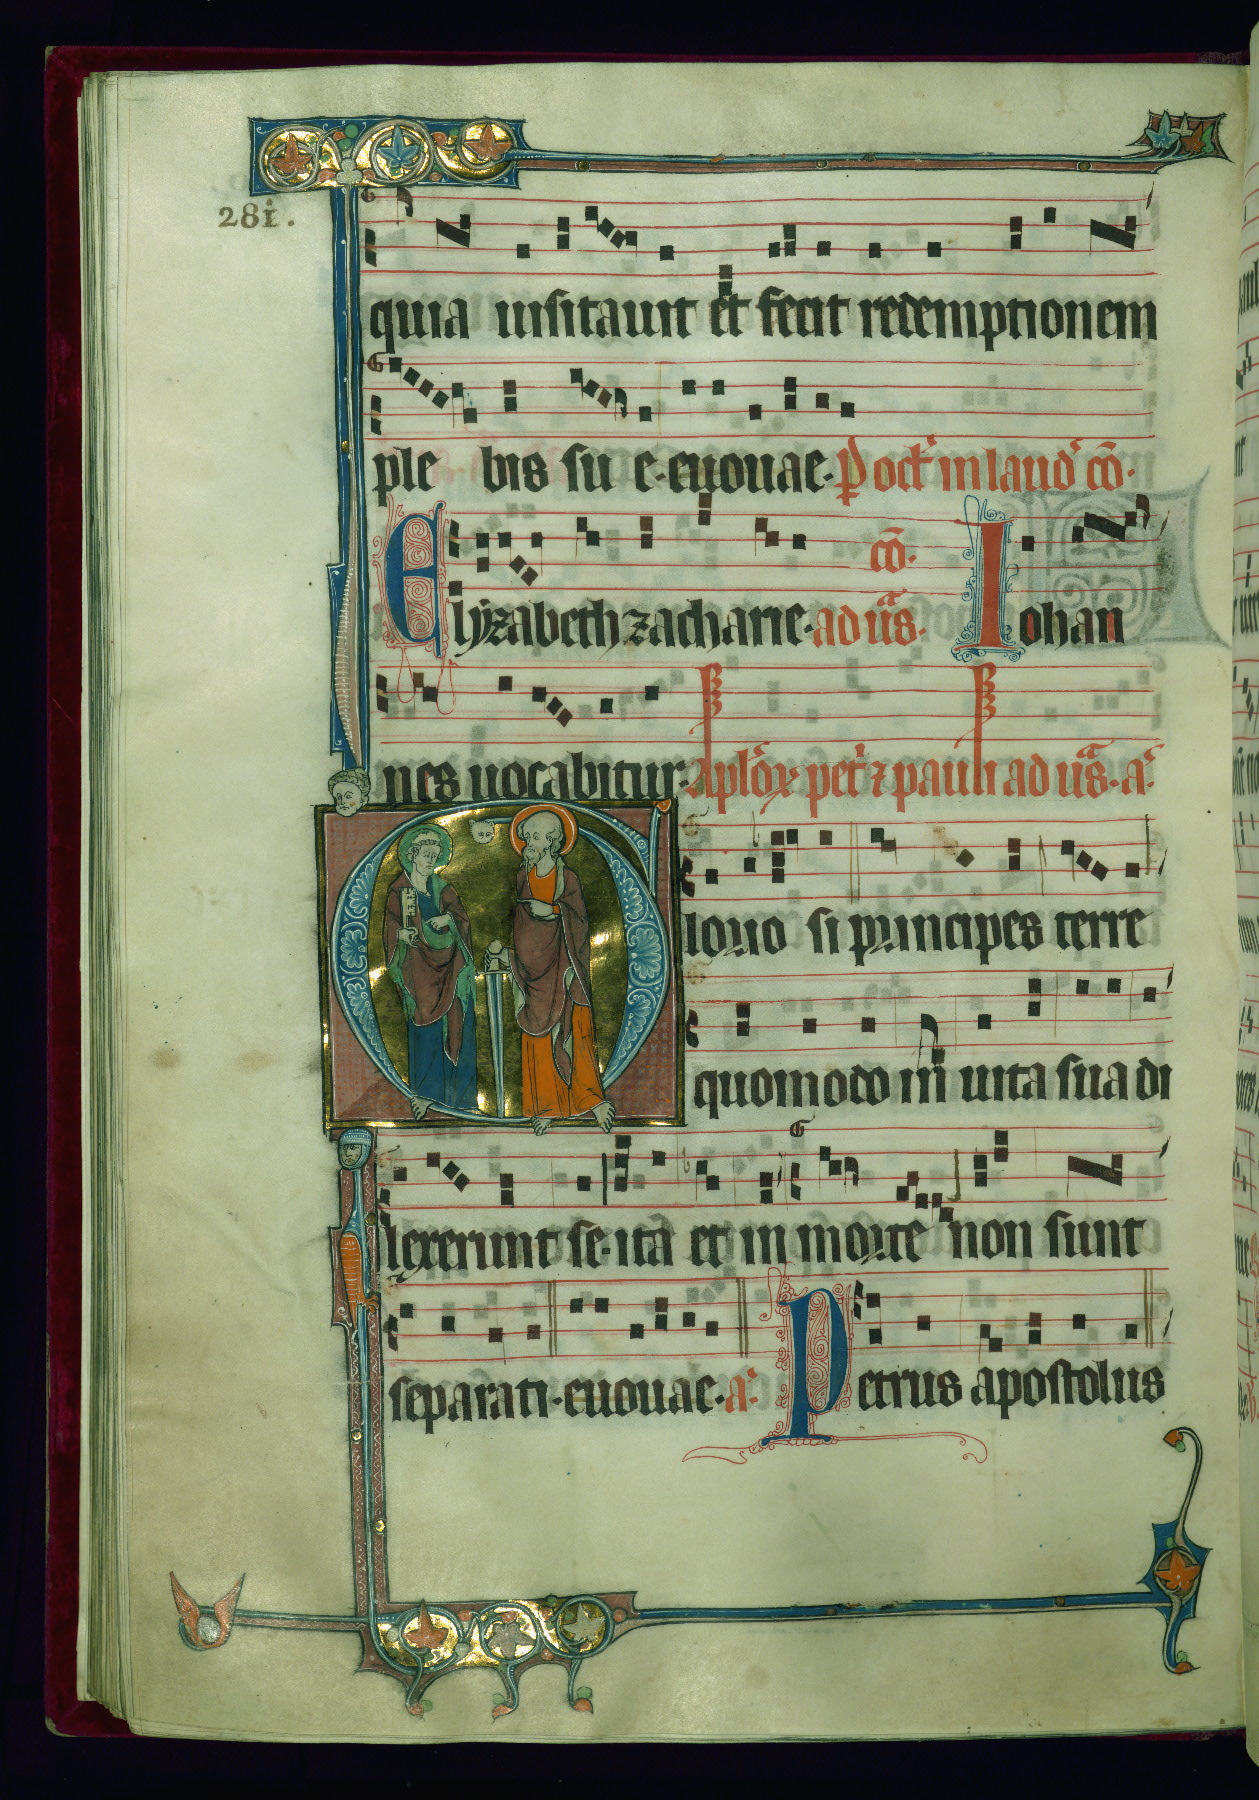 281.
quia uisitauit et fecit redemptionem
ple bis su e. euouae. P oct' in laud' cō.
cō.
Elyzabeth zacharie. ad uās. Iohan
nes uocabitur. Aplōꝝ pet' ⁊ pauli ad uās. a'
Gloriosi principes terre
quomodo in uita sua di
lexerunt se. ita et in morte non sunt
separati. euouae. a' Petrus apostolus